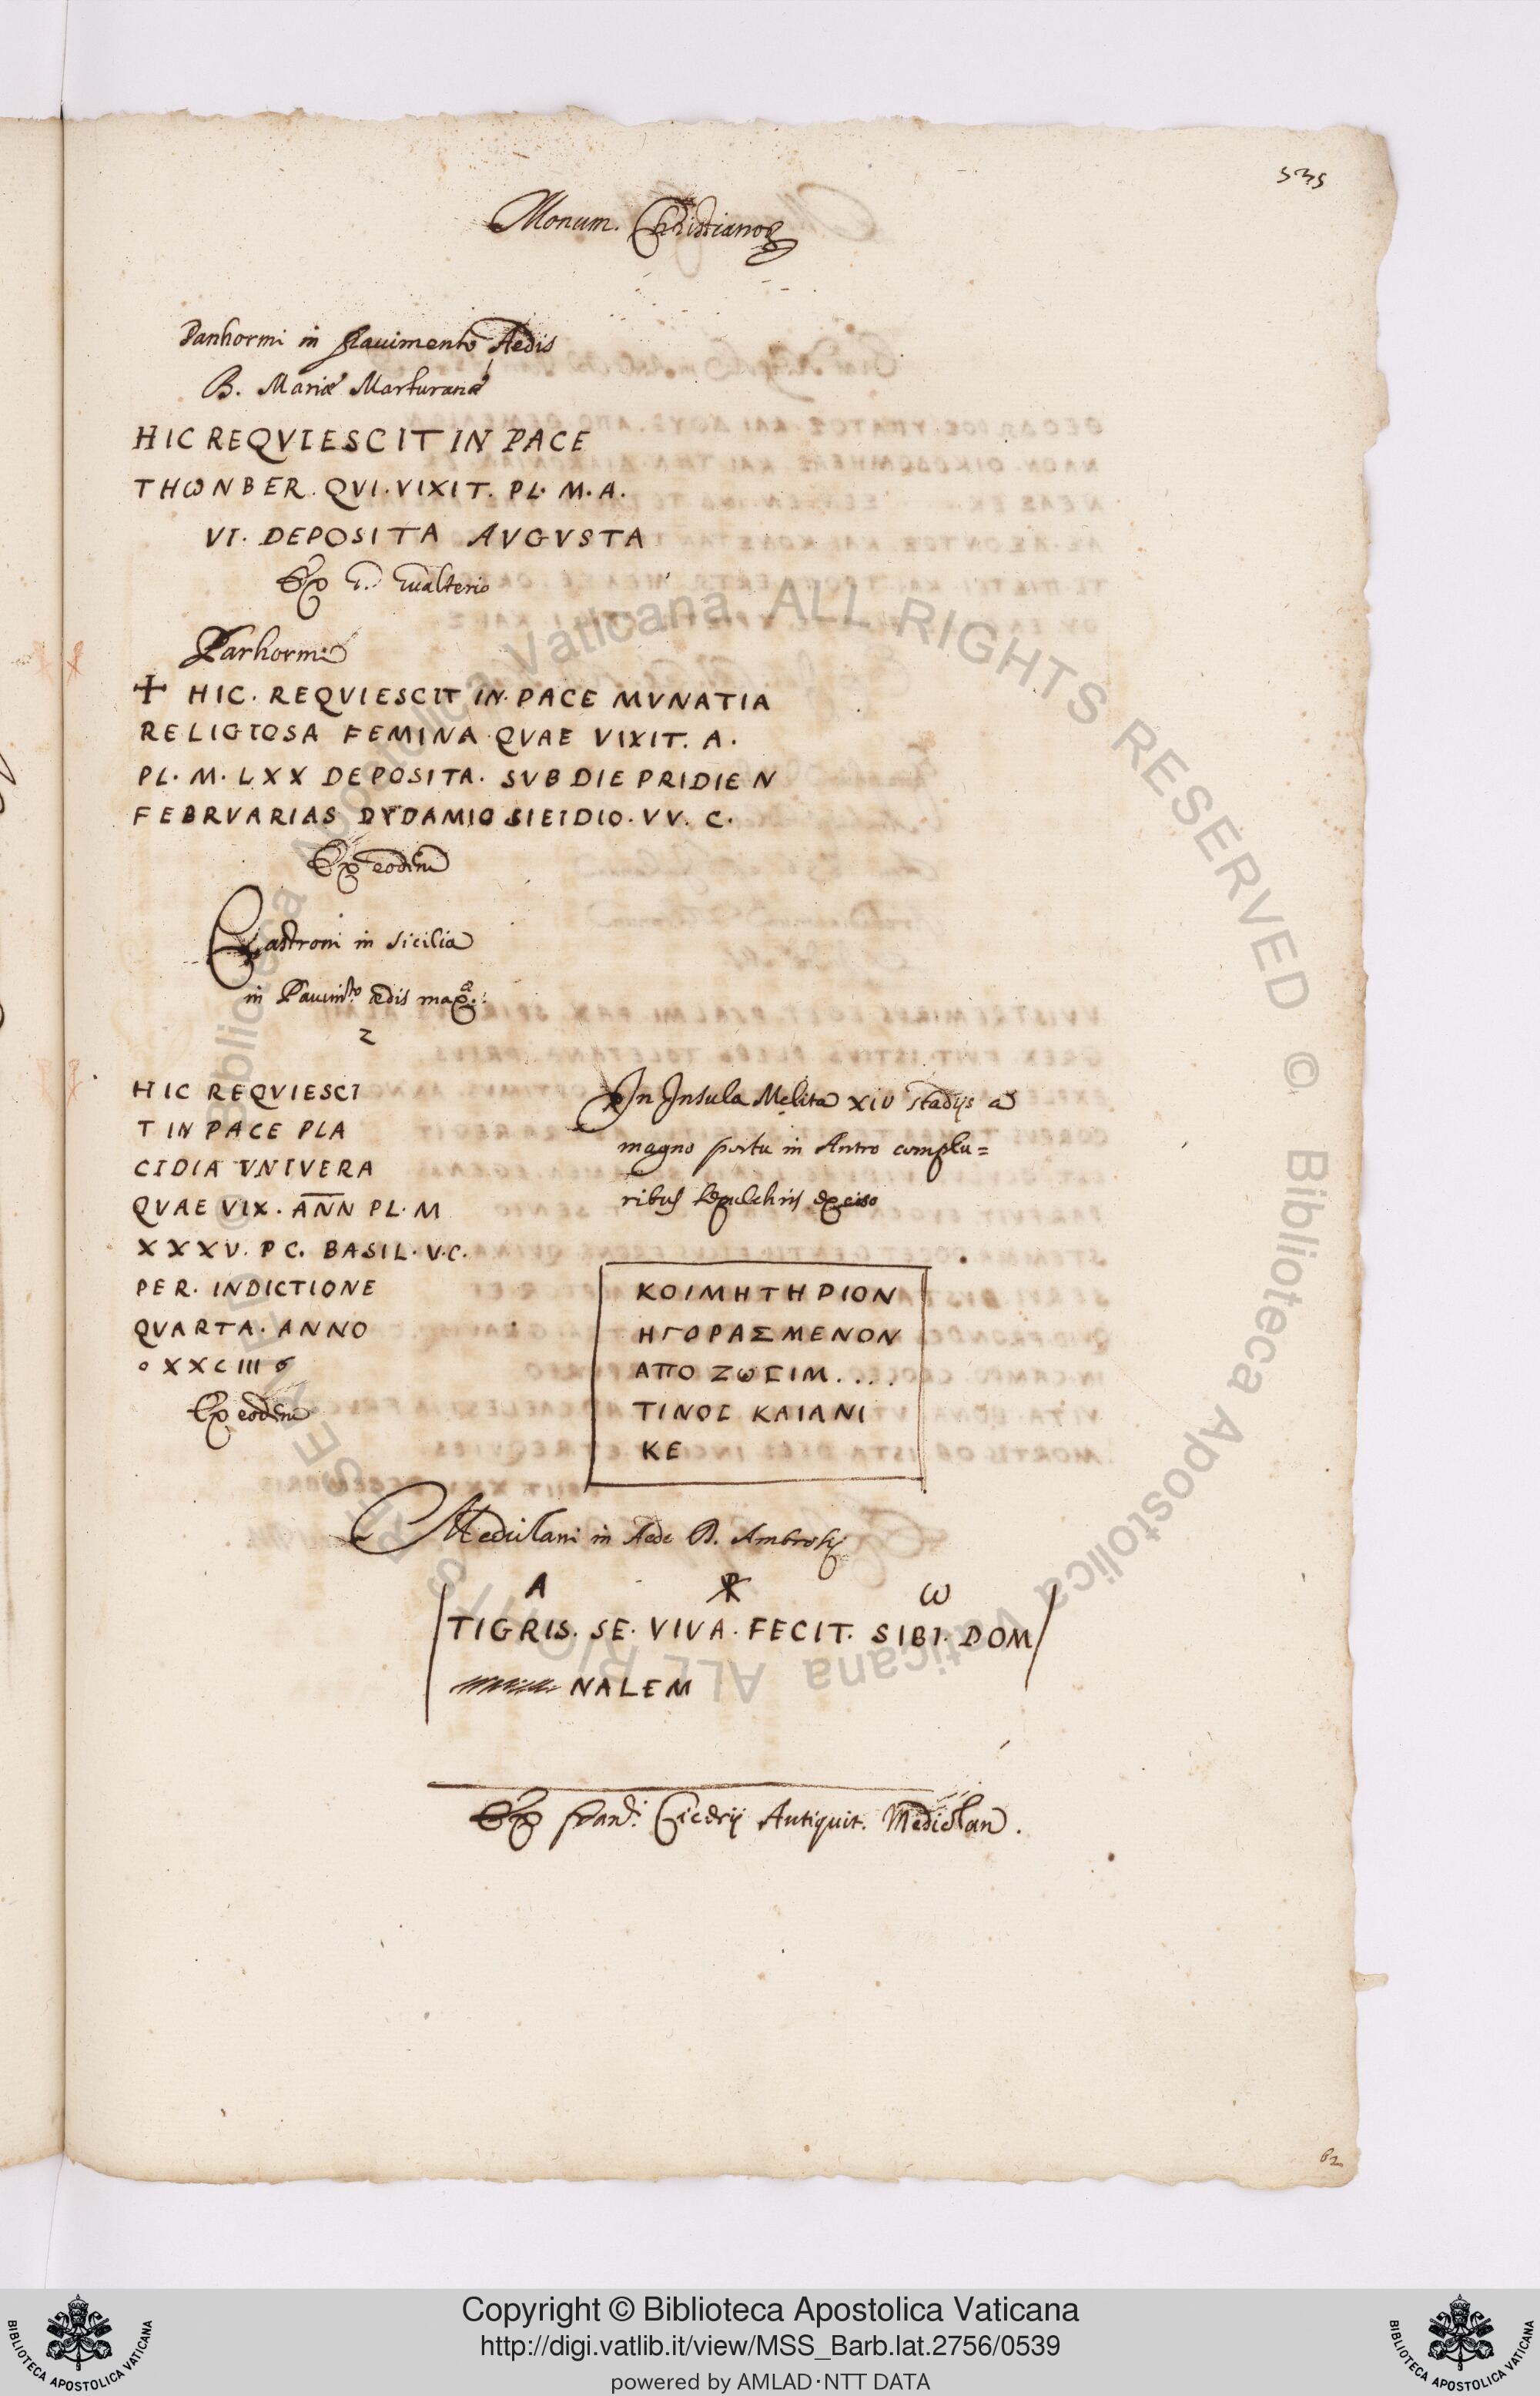 535
Monum. Christianoꝝ
Panhormi in pauimento Aedis
B. Mariæ Marturanæ
HIC REQVIESCIT IN PACE
THωNBER. QVI. VIXIT. PL. M. A.
VI. DEPOSITA AVGVSTA
Ex Gualterio
Panhormi
✝ HIC. REQVIESCIT IN. PACE MVNATIA
RELIGIOSA FEMINA QVAE VIXIT. A.
PL. M. LXX DEPOSITA. SVB DIE PRIDIE N
FEBRVARIAS DYDAMIO SIEIDIO. VV. C.
Ex eodem
in Sicilia
in Pauimto ædis
HIC REQVIESCI
T IN PACE PLA
CIDIA VNIVERA
QVAE VIX. ANN PL. M
XXXV. P C. BASIL. V. C.
PER. INDICTIONE
QVARTA. ANNO
Ex eodem
In Insula Melita XIV stadijs a
magno portu in Antro complu=
ribus sepulchris exciso
ΚΟΙΜΗΤΗΡΙΟΝ
ΗΓΟΡΑΣΜΕΝΟΝ
ΑΠΟ ΖωϹΙΜ....
ΤΙΝΟϹ ΚΑΙΑΝΙ
ΚΕ
Mediolani in Aede D. Ambrosij
A ☧ ω
TIGRIS. SE. VIVA. FECIT. SIBI. DOM
NALEM
Ex Antiquit. Mediolan.
62
© Biblioteca Apostolica Vaticana ALL RIGHTS RESERVED
© Biblioteca Apostolica Vaticana ALL RIGHTS RESERVED
BIBLIOTECA APOSTOLICA VATICANA
Copyright © Biblioteca Apostolica Vaticana
http://digi.vatlib.it/view/MSS_Barb.lat.2756/0539
powered by AMLAD·NTT DATA
BIBLIOTECA APOSTOLICA VATICANA